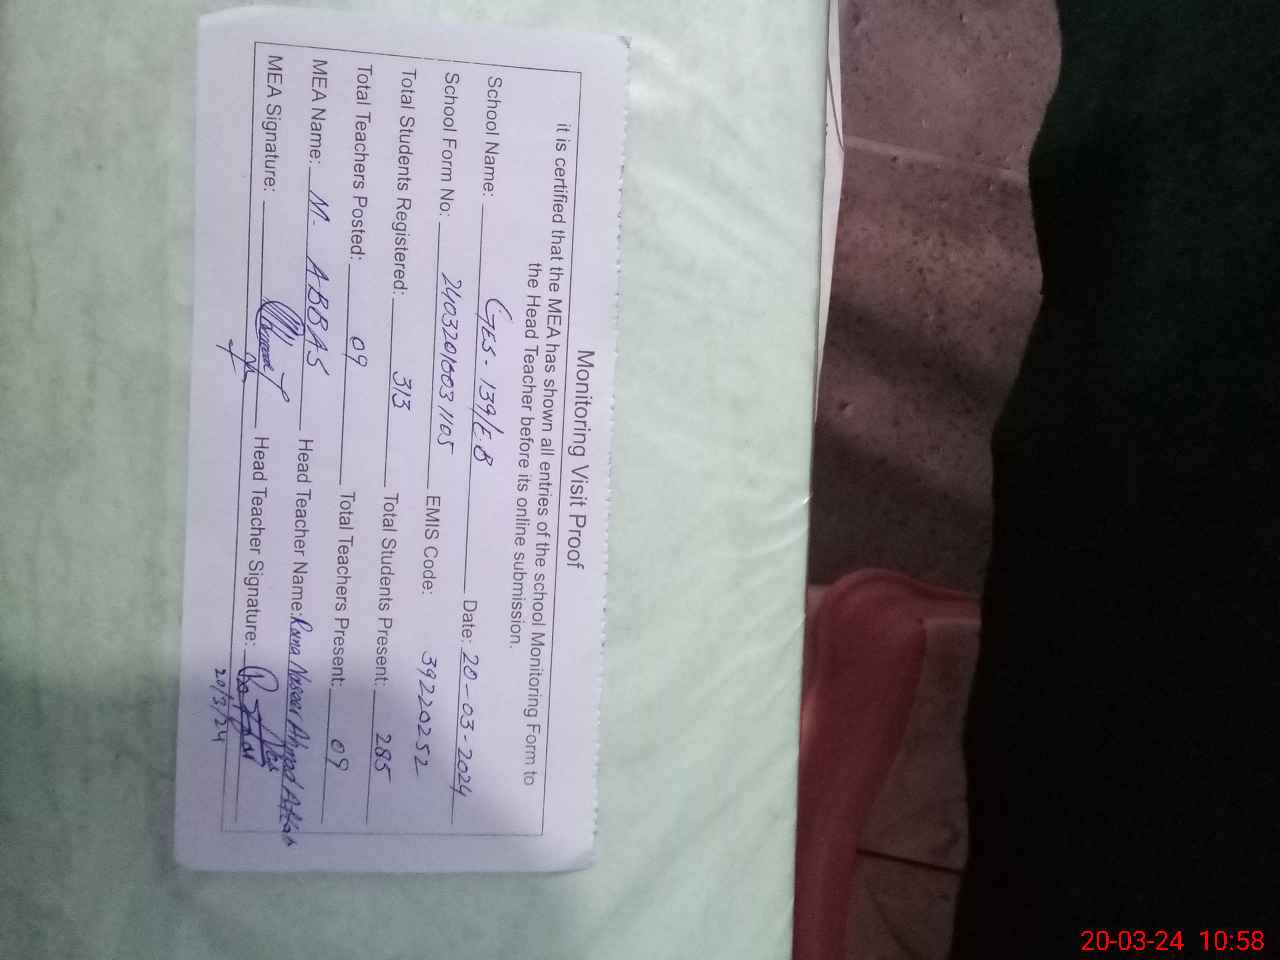 Monitoring Visit Proof
it is certified that the MEA has shown all entries of the school Monitoring Form to
the Head Teacher before its online submission.
School Name: GES - 139/E.B Date: 20-03-2024
School Form No: EMIS Code: 39220252
Total Students Registered: 313 Total Students Present: 285
Total Teachers Posted: 09 Total Teachers Present: 09
MEA Name: M. ABBAS Head Teacher Name: Rana Naseer Ahmad
MEA Signature: Head Teacher Signature:
20/3/24
20-03-24 10:58